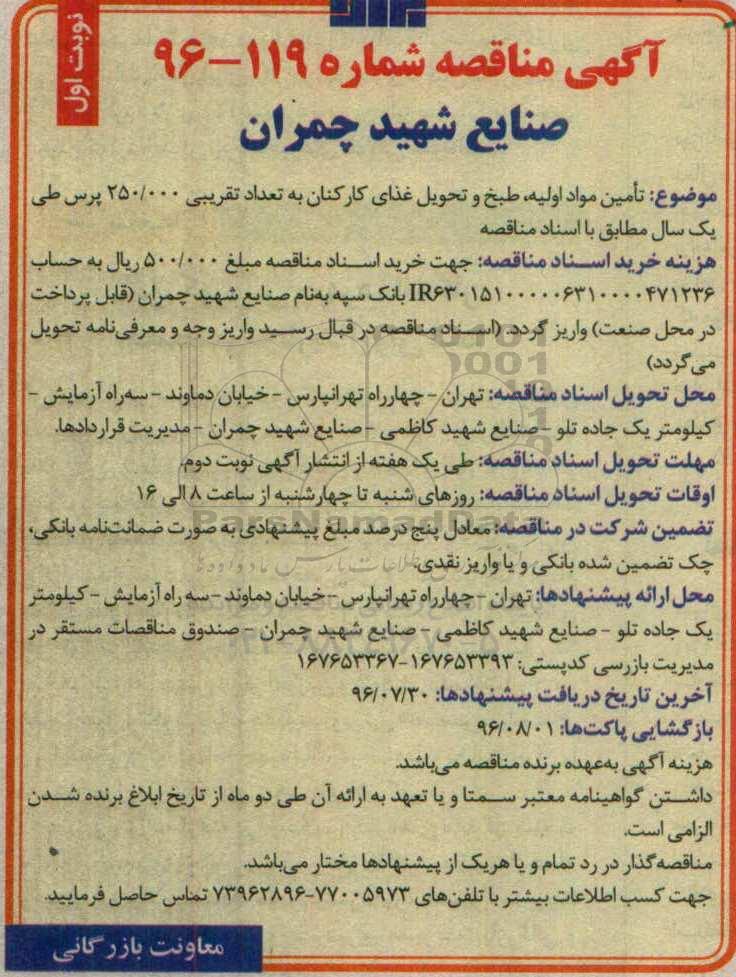 نوبت اول
آگهی مناقصه شماره ۱۱۹-۹۶
صنایع شهید چمران
موضوع: تأمین مواد اولیه، طبخ و تحویل غذای کارکنان به تعداد تقریبی ۲۵۰/۰۰۰ پرس طی
یک سال مطابق با اسناد مناقصه
هزینه خرید اسناد مناقصه: جهت خرید اسناد مناقصه مبلغ ۵۰۰/۰۰۰ ریال به حساب
IR۶۳۰۱۵۱۰۰۰۰۰۶۳۱۰۰۰۰۴۷۱۲۳۶ بانک سپه به‌نام صنایع شهید چمران (قابل پرداخت
در محل صنعت) واریز گردد. (اسناد مناقصه در قبال رسید واریز وجه و معرفی‌نامه تحویل
می‌گردد)
محل تحویل اسناد مناقصه: تهران - چهارراه تهرانپارس - خیابان دماوند - سه‌راه آزمایش -
کیلومتر یک جاده تلو - صنایع شهید کاظمی - صنایع شهید چمران - مدیریت قراردادها.
مهلت تحویل اسناد مناقصه: طی یک هفته از انتشار آگهی نوبت دوم.
اوقات تحویل اسناد مناقصه: روزهای شنبه تا چهارشنبه از ساعت ۸ الی ۱۶
تضمین شرکت در مناقصه: معادل پنج درصد مبلغ پیشنهادی به صورت ضمانت‌نامه بانکی،
چک تضمین شده بانکی و یا واریز نقدی.
محل ارائه پیشنهادها: تهران - چهارراه تهرانپارس - خیابان دماوند - سه راه آزمایش - کیلومتر
یک جاده تلو - صنایع شهید کاظمی - صنایع شهید چمران - صندوق مناقصات مستقر در
مدیریت بازرسی کدپستی: ۱۶۷۶۵۳۳۹۳-۱۶۷۶۵۳۳۶۷
آخرین تاریخ دریافت پیشنهادها: ۹۶/۰۷/۳۰
بازگشایی پاکت‌ها: ۹۶/۰۸/۰۱
هزینه آگهی به‌عهده برنده مناقصه می‌باشد.
داشتن گواهینامه معتبر سمتا و یا تعهد به ارائه آن طی دو ماه از تاریخ ابلاغ برنده شدن
الزامی است.
مناقصه‌گذار در رد تمام و یا هریک از پیشنهادها مختار می‌باشد.
جهت کسب اطلاعات بیشتر با تلفن‌های ۷۷۰۰۵۹۷۳-۷۳۹۶۲۸۹۶ تماس حاصل فرمایید.
معاونت بازرگانی